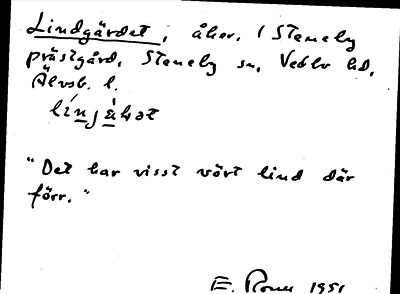 Lindgärdet, åker. 1 Steneby
prästgård, Steneby sn, Vedbo hd,
Älvsb. l.
"Det har visst vårt lind där
förr."
E. 1951